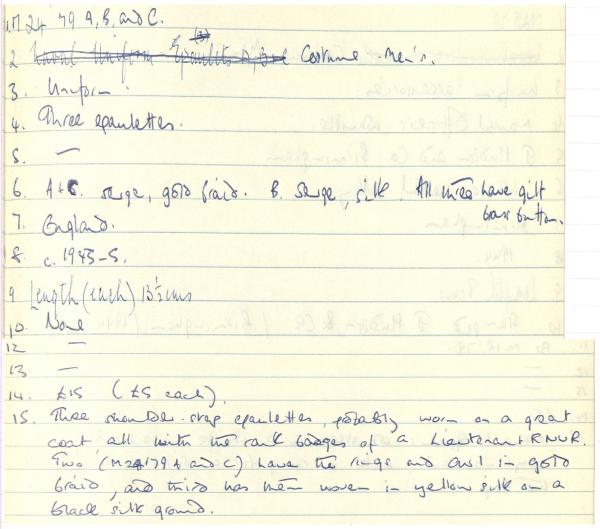 M24 79 A, B, and C.
2 Naval Uniform Epaulets (3) A, B & C Costume - Men's.
3. Uniform.
4. Three epaulettes.
5. —
6. A + C. serge, gold braid. B. serge, silk. All three have gilt
brass button.
7. England.
8. c. 1943-5.
9 Length (each) 13½ cms
10. None
12 —
13 —
14. £15 (£5 each).
15. Three shoulder-strap epaulettes, probably worn on a great
coat, all with the rank badges of a Lieutenant RNVR.
Two (M24179 A and C) have the rings and owl in gold
braid, and third has them woven in yellow silk on a
black silk ground.